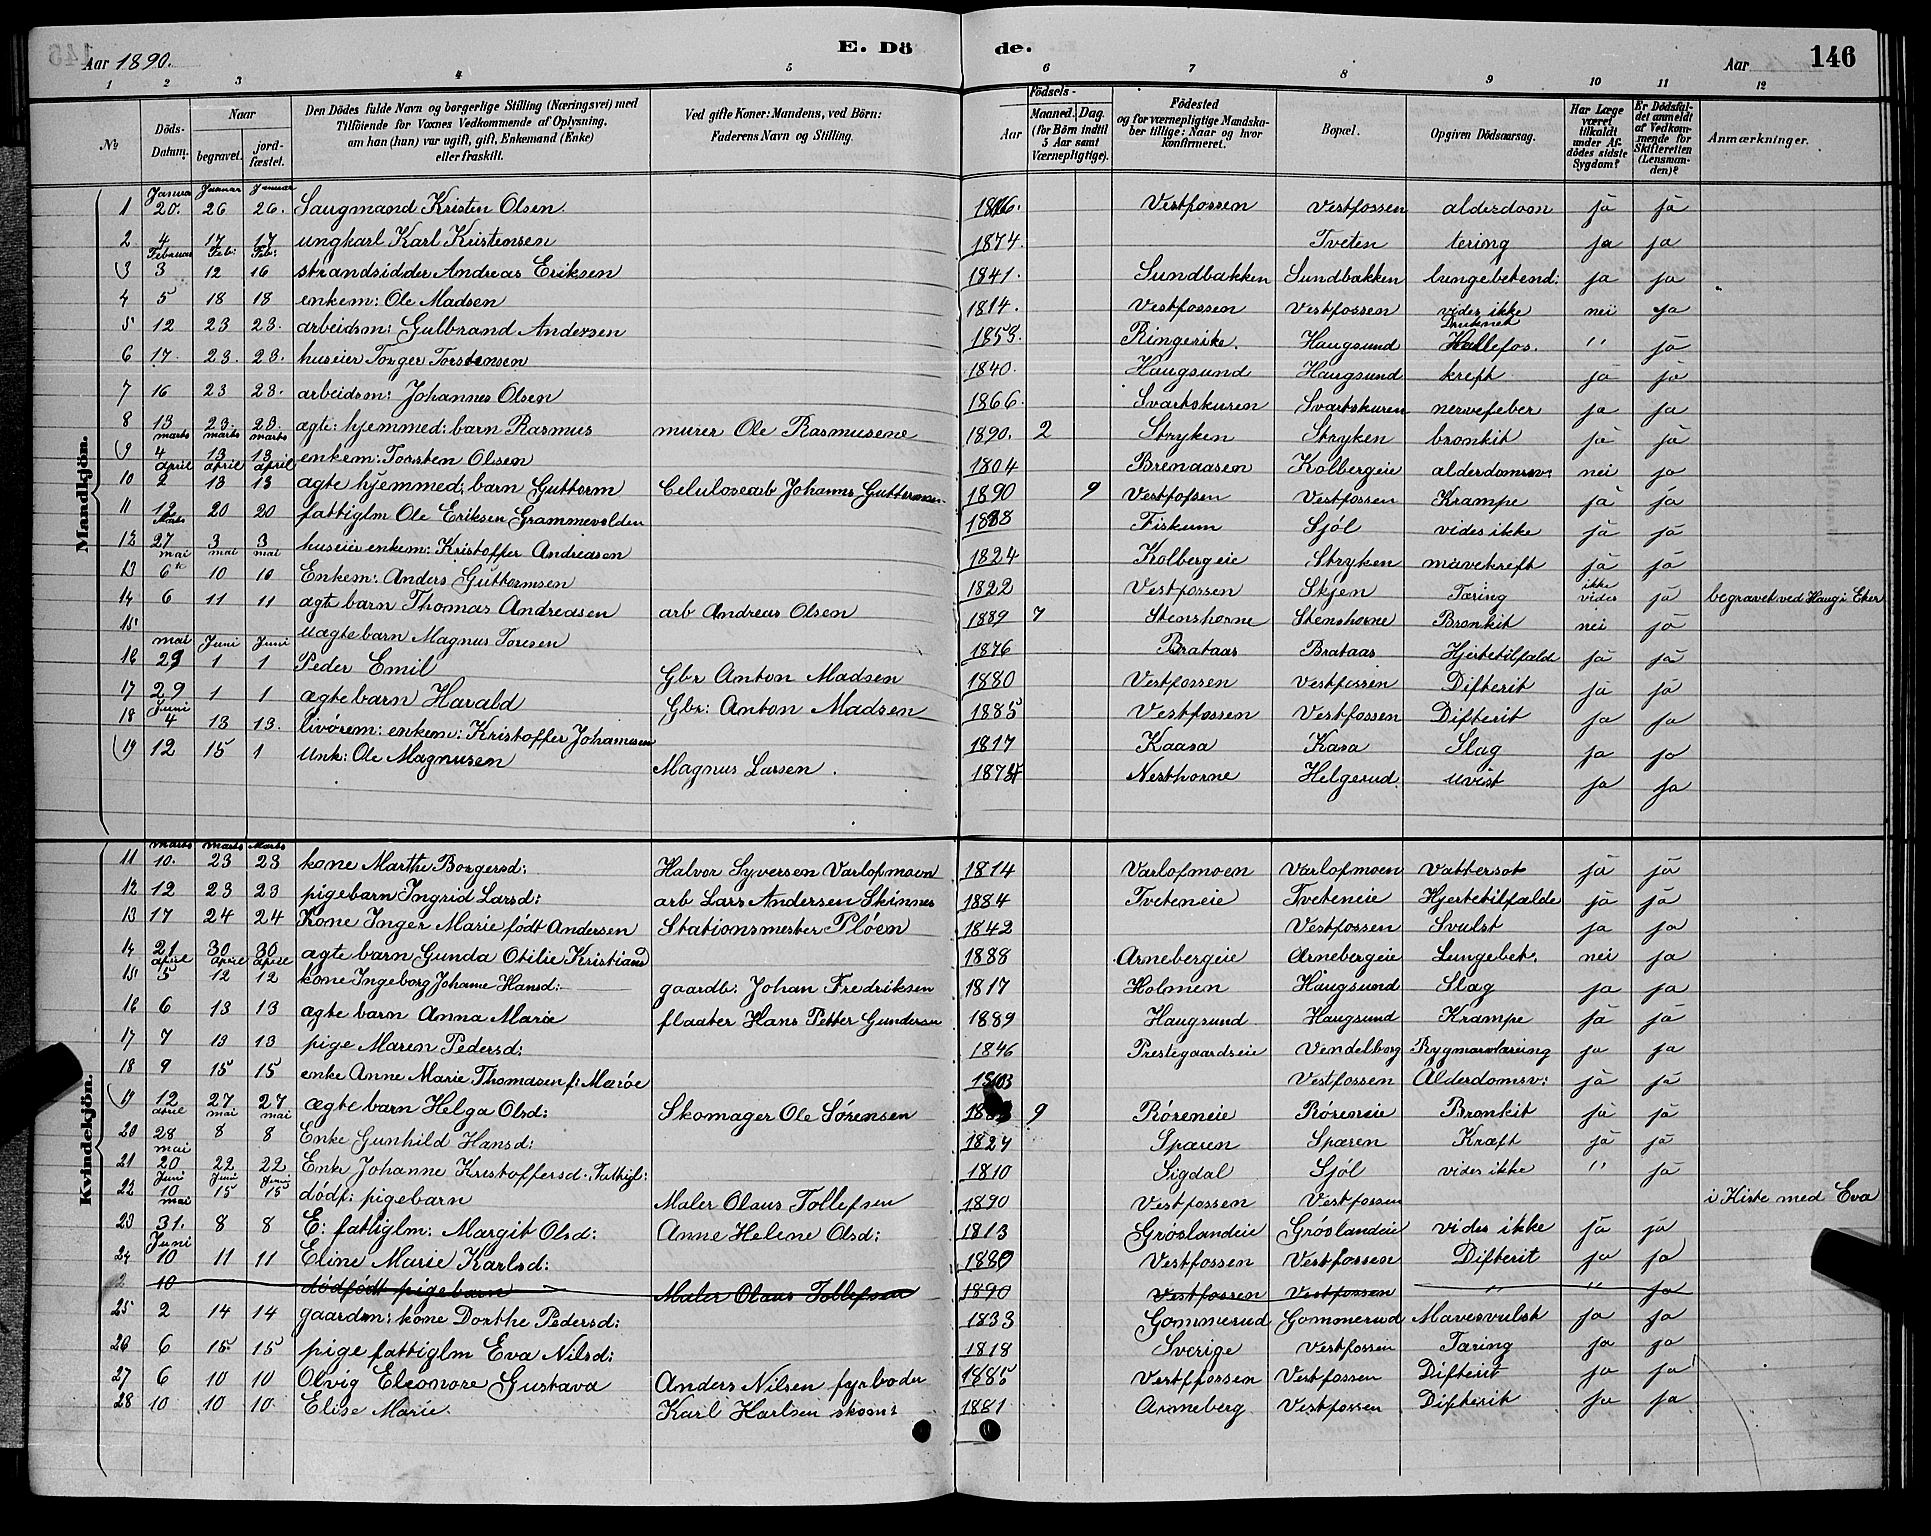 Aar 1890.
E. Dö
de.
Aar
146
1 2 3 4 5 6 7 8 9 10 11 12
№
Döds-Datum.
Naar
begravet.
jordfæstet.
Den Dödes fulde Navn og borgerlige Stilling (Næringsvei) med Tilföiende for Voxnes Vedkommende af Oplysning, om han (hun) var ugift, gift, Enkemand (Enke) eller fraskilt.
Ved gifte Koner: Mandens, ved Börn: Faderens Navn og Stilling.
Födsels-
Aar
Maaned. Dag.
(for Börn indtil 5 Aar samt Værnepligtige).
Födested og for værnepligtige Mandskaber tillige: Naar og hvor konfirmeret.
Bopæl.
Opgiven Dödsaarsag.
Har Læge været tilkaldt under Afdödes sidste Sygdom?
Er Dödsfaldet anmeldt af Vedkommende for Skifteretten (Lensmanden)?
Anmærkninger.
Mandkjön.
Januar Januar Januar
1 20. 26 26. Saugmand Kristen Olsen. Vestfossen Vestfossen alderdoon ja ja
2 4 17 17 ungkarl Karl Kristensen 1874. Tveten tering ja ja
Februar Feb: Feb:
3 3 12 16 strandsidder Andreas Eriksen 1841. Sundbakken Sundbakken lungebetend: ja ja
4 5 18 18 enkem: Ole Madsen 1814. Vestfossen Vestfossen vides ikke nei ja
5 12 23 23. arbeidsm: Gulbrand Andersen 1853. Ringerike. Haugsund Druknet Hallefos. " ja
6 17. 23. 23. huseier Torger Torstensen 1840. Haugsund Haugsund kreft ja ja
7 16 23 23. arbeidsm: Johannes Olsen 1866. Svartskuren Svartskuren nervefeber ja ja
8 13 23. 23. agte: hjemmed: barn Rasmus murer Ole Rasmusene 1890. 2 Stryken Stryken bronkit ja ja
marts marts marts
9 4 13 13 enkem: Torsten Olsen 1804 Brenaasen Kolbergeie alderdomssv: nei ja
april april april
10 2 13 13 agte hjemmed: barn Guttorm Celulosearb Johannes Guttormsen 1890 9 Vestfossen Vestfossen Krampe ja ja
11 12 20 20 fattiglm Ole Eriksen Grammevolden Fiskum Sjöl vides ikke ja ja
Marts
12 27 3 3 huseier enkem: Kristoffer Andreasen 1824 Kolbergeie Stryken mavekreft ja ja
mai mai mai
13 6te 10 10 Enkem: Anders Guttormsen 1822 Vestfossen Skjen Tæring ikke vides ja begravet ved Haug i Eker
14 6 11 11 agte barn Thomas Andreasen arb Andreas Olsen 1889 7 Stenshorne Stenshorne Bronkit nei ja
15 uagte barn Magnus Toresen 1876 Brataas Brataas Hjertetilfald ja ja
mai Juni Juni
16 29 1 1 Peder Emil Gbr Anton Madsen 1880 Vestfossen Vestfossen Difterit ja ja
17 29 1 1 agte barn Harald Gbr: Anton Madsen 1885 Vestfossen Vestfossen Difterit ja ja
Juni
18 4 13 13. livörem: enkem: Kristoffer Johannesen 1817 Kaasa Kasa Slag ja ja
19 12 15 1 Unk: Ole Magnusen Magnus Larsen. 1874 Nesthorne Helgerud. uvist ja ja
Kvindekjön.
marts marts Marts
11 10. 23 23 kone Marthe Borgersd: Halvor Syversen Varlofmoen 1814 Varlofmoen Varlofmoen Vattersot ja ja
12 12 23 23 pigebarn Ingrid Larsd: arb Lars Andersen Skinnes 1884 Tveteneie Tveteneie Hjertetilfælde ja ja
13 17 24 24 Kone Inger Marie født Andersen Stationsmester Plöen 1842 Vestfossen Svulst ja ja
14 21 30 30 agte barn Gunda Otilie Kristiansd 1888 Arnebergeie Arnebergeie Lungebet. nei ja
april april april
15 5 12 12 kone Ingeborg Johanne Hansd: gaardb: Johan Fredriksen 1817 Holmen Haugsund Slag ja ja
16 6 13 13 agte barn Anna Marie flaater Hans Petter Gundersen 1889 Haugsund Haugsund Krampe ja ja
17 7 13 13 pige Maren Pedersd: 1846 Prestegaardseie Vendelborg Rygmarvtæring ja ja
18 9 15 15 enke Anne Marie Thomasen f: Maröe 1803 Vestfossen Alderdomsv: ja ja
19 12 27 27 ægte barn Helga Olsd: Skomager Ole Sörensen 9 Röreneie Röreneie Bronkit ja ja
april mai mai
20 28 8 8 Enke Gunhild Hansd: Sparen Sparen Kræft ja ja
mai
21 20 22 22 Enke Johanne Kristoffersd. Fattigl: 1810 Sigdal Sjöl vides ikke " ja
Juni Juni Juni
22 10 15 15 dödf: pigebarn Maler Olaus Tollefsen 1890 Vestfossen Vestfossen i Kiste med Eva
mai
23 31. 8 8 E: fattiglm: Margit Olsd: Anne Helene Olsd: 1813 Gröslandeie Gröslandeie vides ikke ja ja
Juni
24 10 11 11 Eline Marie Karlsd: 1880 Vestfossen Vestfossen Difterit ja ja
2 10 dödfödt pigebarn Maler Olaus Tollefsen 1890 Vestfossen Vestfossen " " ja
25 2 14 14 gaardm: kone Dorthe Pedersd: 1833 Gommerud Gommerud Mavesvulst ja ja
26 6 15 15 pige fattiglm Eva Nilsd: 1818 Sverige Vestfossen Tæring ja ja
27 6 10 10 Olvig Eleonore Gustava Anders Nilsen fyrboder 1885 Vestffossen Vestfossen Difterit ja ja
28 10 10 10. Elise Marie. Karl Karlsen skom: 1881 Arneberg Vestfossen Difterit ja ja